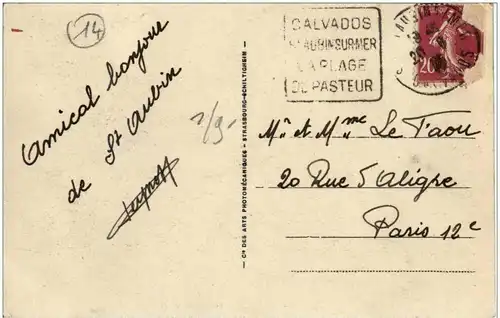 14
Amical bonjour
de St Aubin
2/9-
CALVADOS
ST AUBIN SUR MER
LA PLAGE
DE PASTEUR
20
Mr et Mme Le Faou
20 Rue d'Aligre
Paris 12e
- Cie DES ARTS PHOTOMÉCANIQUES - STRASBOURG-SCHILTIGHEIM -